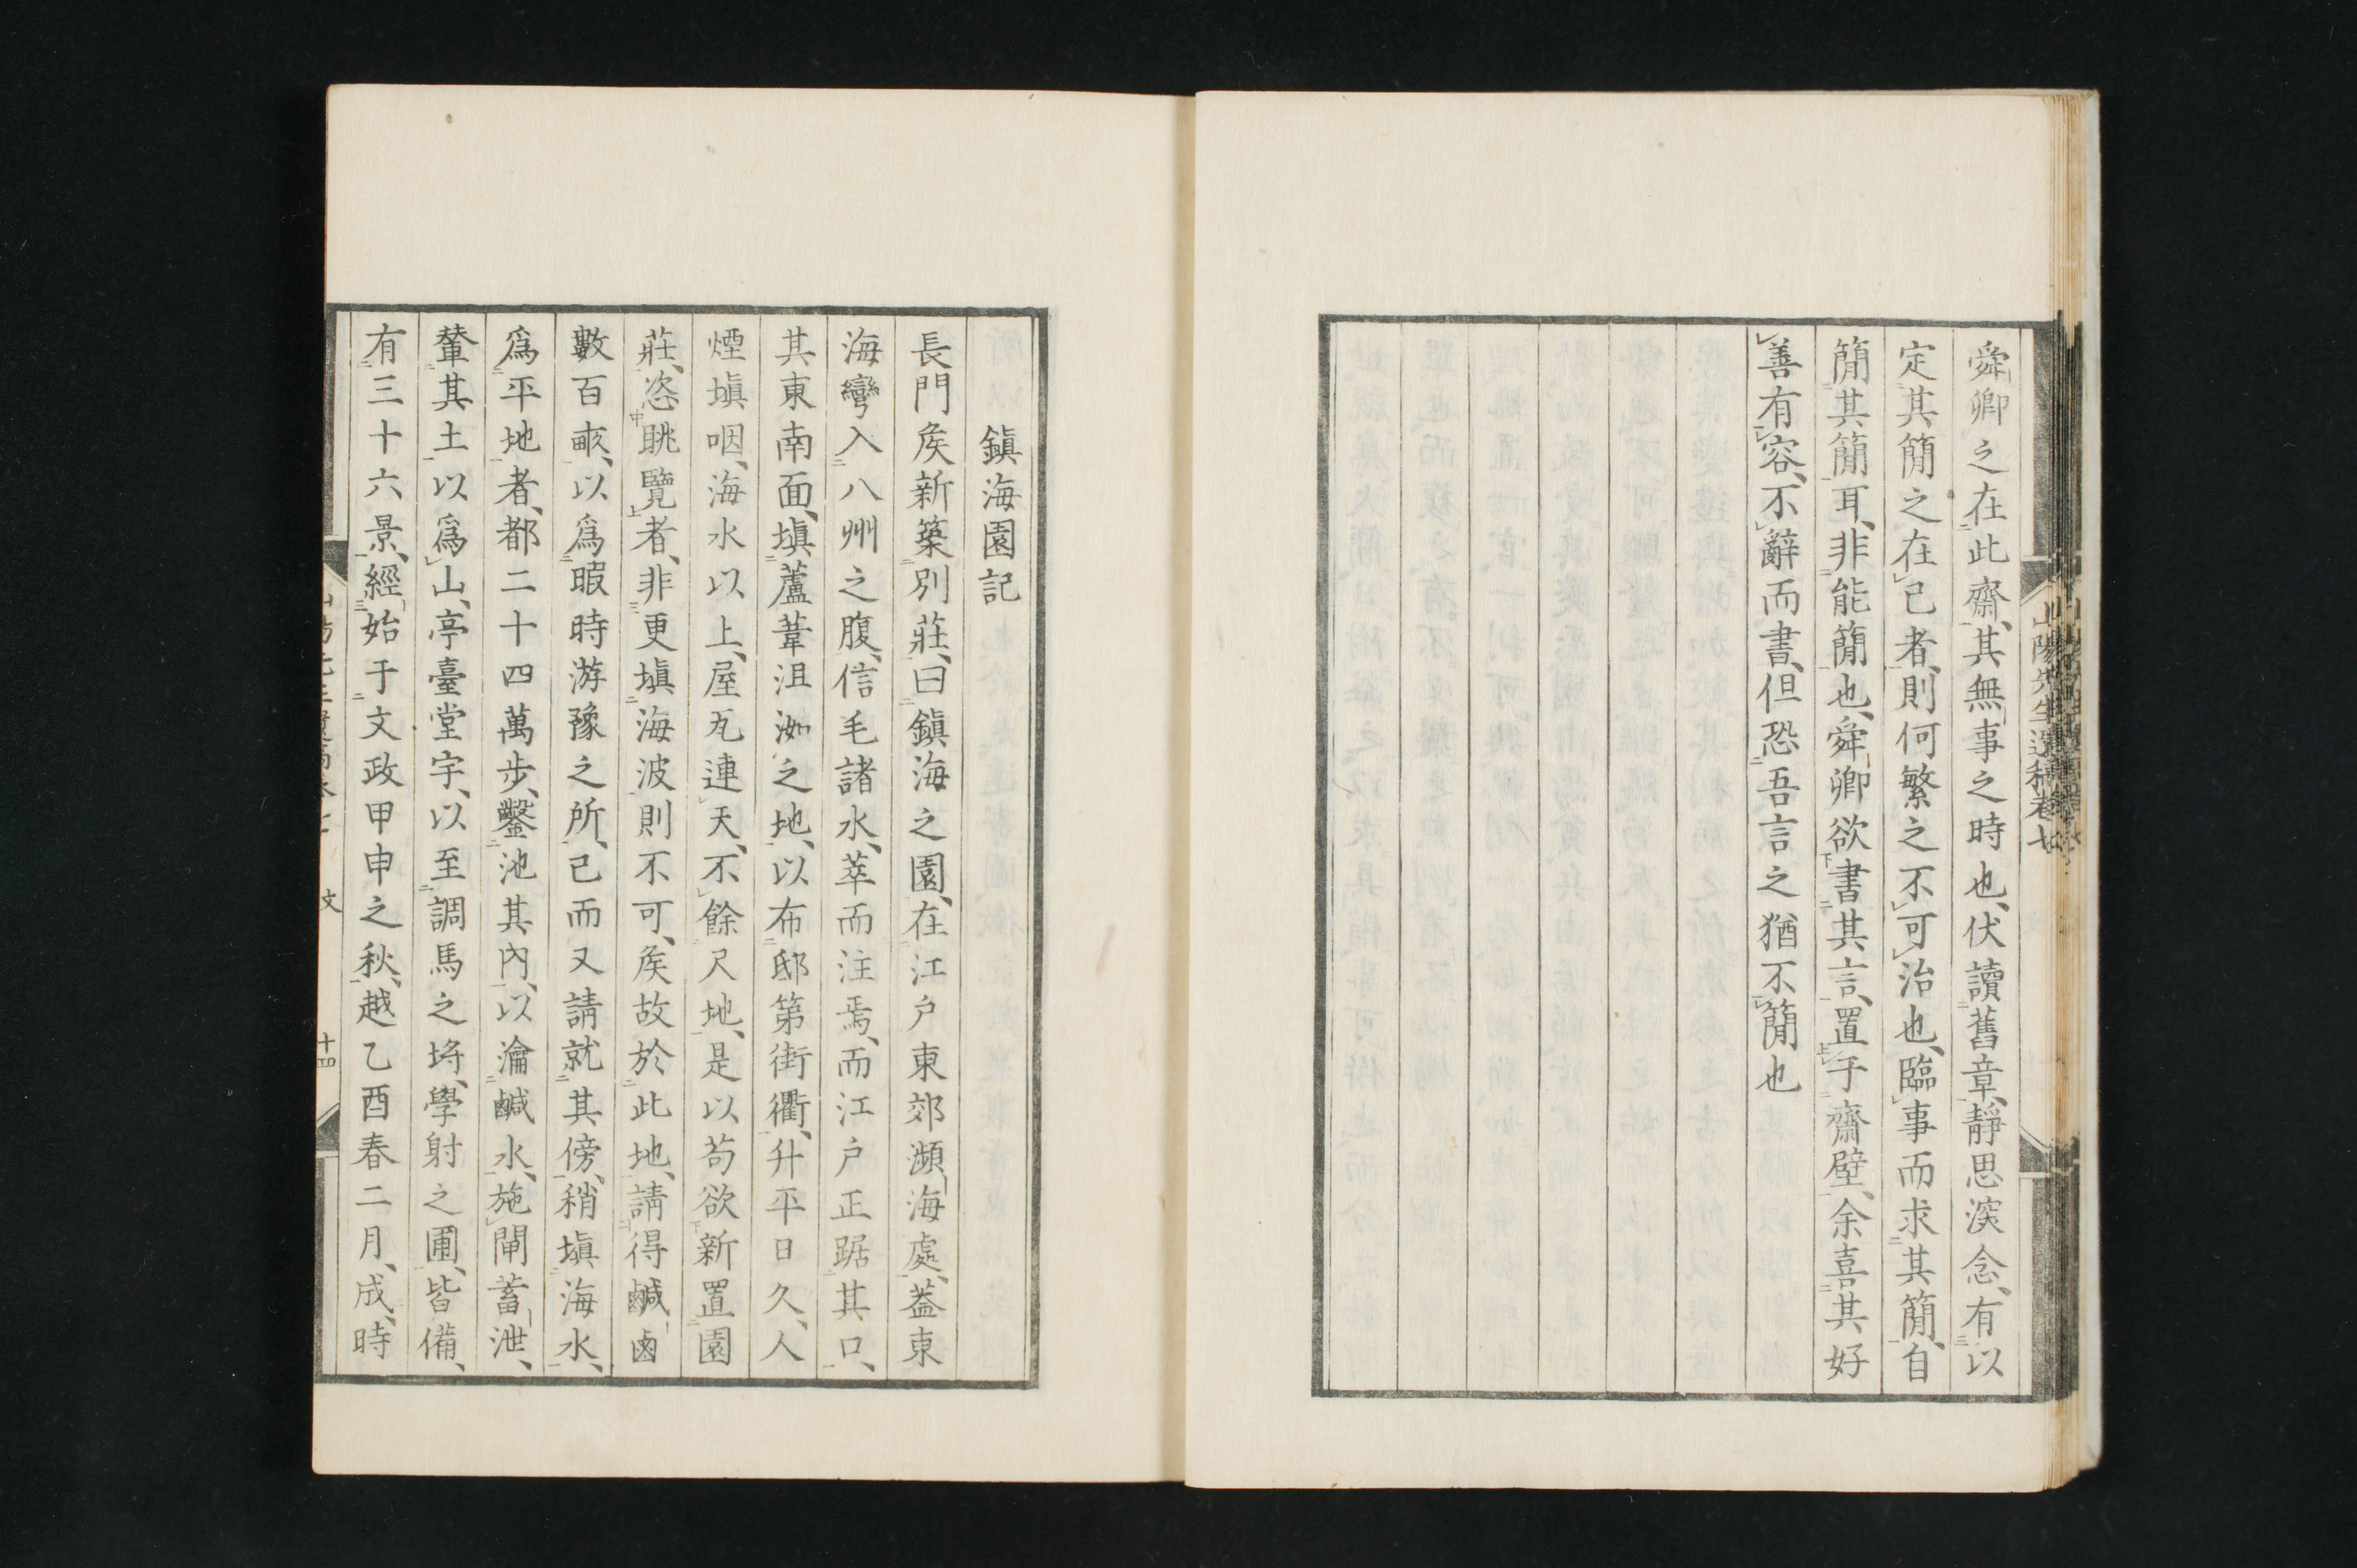 舜卿之在此齋、其無事之時也、伏讀舊章、靜思深念、有以
定其簡之在己者、則何繁之不可治也、臨事而求其簡、自
簡其簡耳、非能簡也、舜卿欲書其言、置于齋壁、余喜其好
善有容、不辭而書、但恐吾言之猶不簡也
山陽先生遺稿卷七
鎭海園記
長門矦新築別莊、曰鎭海之園、在江戶東郊瀕海處、蓋東
海彎入八州之腹、信毛諸水、萃而注焉、而江戶正踞其口、
其東南面、塡蘆葦沮洳之地、以布邸第街衢、升平日久、人
煙塡咽、海水以上、屋瓦連天、不餘尺地、是以苟欲新置園
莊、恣眺覽者、非更塡海波、則不可、矦故於此地、請得鹹鹵
數百畞、以爲暇時游豫之所、已而又請就其傍、稍塡海水、
爲平地者、都二十四萬步、鑿池其內、以瀹鹹水、施閘蓄泄、
輦其土以爲山、亭臺堂宇、以至調馬之埒、學射之圃、皆備、
有三十六景、經始于文政甲申之秋、越乙酉春二月、成、時
文
十四